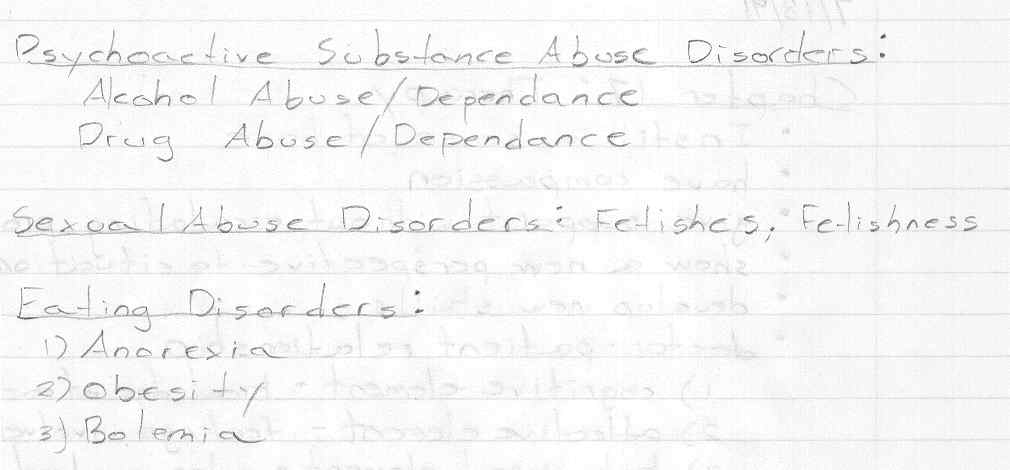 Psychoactive Substance Abuse Disorders:
Alcohol Abuse/Dependance
Drug Abuse/Dependance
Sexual Abuse Disorders: Fetishes, Fetishness
Eating Disorders:
1) Anorexia
2) Obesity
3) Bolemia